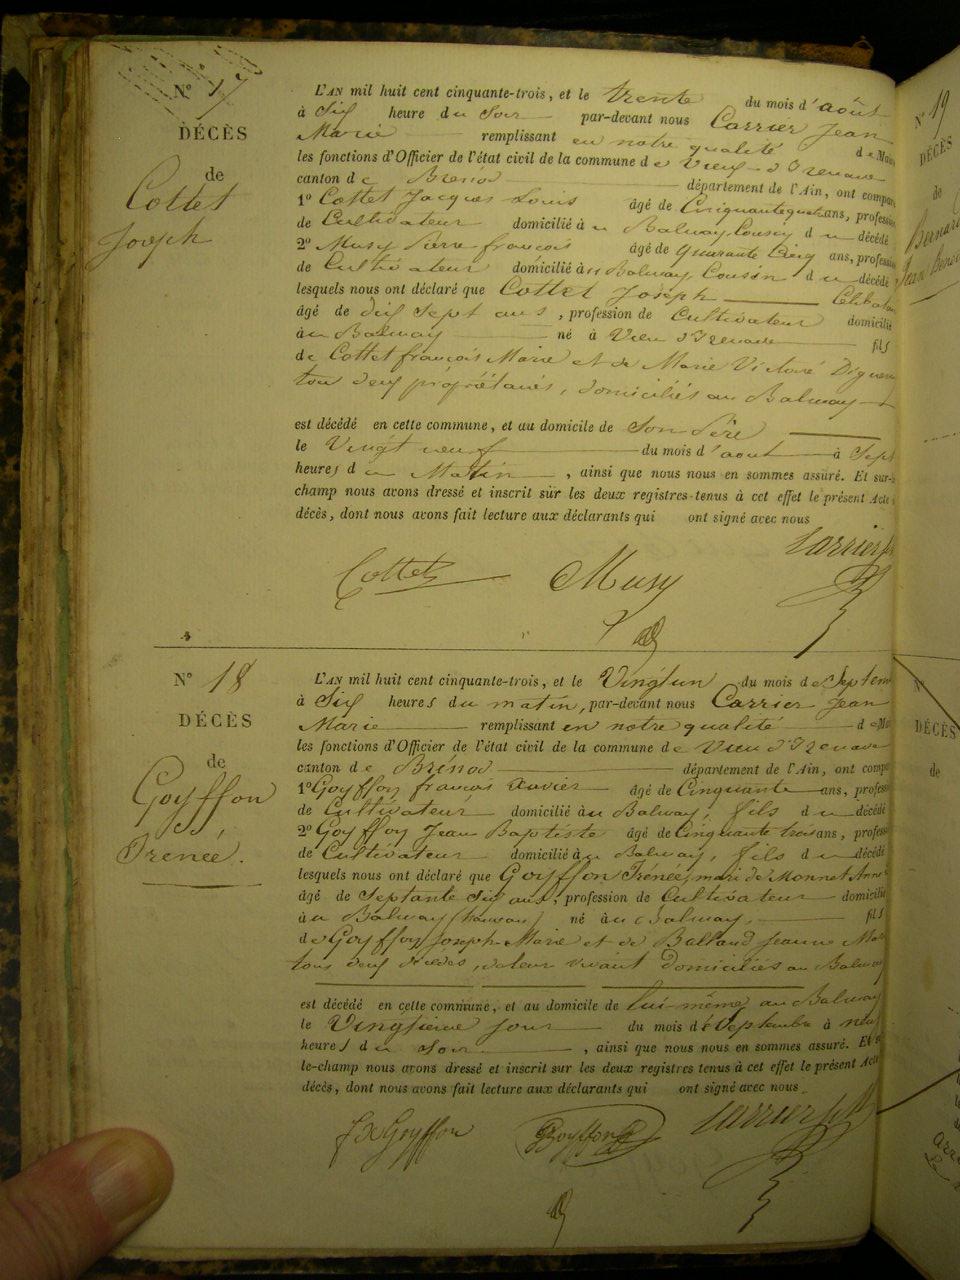 N° 17
DÉCÈS
de
Cottet
Joseph
L'AN mil huit cent cinquante-trois, et le Trente du mois d'août
à Six heure du Soir par-devant nous Carrier Jean
Marie remplissant en notre qualité de Mai
les fonctions d'Officier de l'état civil de la commune de Vieux d'Izenave
canton de Brénod département de l'Ain, ont compar
1° Cottet Jacques Louis âgé de Cinquantequatre ans, profession
de Cultivateur domicilié à u Balmay, Cousin d u décédé
2° Musy Pierre françois âgé de quarante Cinq ans, profession
de Cultivateur domicilié à u Balmay Cousin d u décédé
lesquels nous ont déclaré que Cottet Joseph Célibatai
âgé de dix Sept ans, profession de Cultivateur domicilié
à u Balmay né à Vieu d'Izenave fils
de Cottet françois Marie et de Marie Victoire
tou deux propriétaires, domiciliés au Balmay
est décédé en cette commune, et au domicile de Son Père
le Vingt neuf du mois d'aout à Sept
heures du Matin, ainsi que nous nous en sommes assuré. Et sur-le-
champ nous avons dressé et inscrit sur les deux registres tenus à cet effet le présent Acte
décès, dont nous avons fait lecture aux déclarants qui ont signé avec nous
Cottet Musy Carrier
N° 18
DÉCÈS
de
Goyffon
Irénée.
L'AN mil huit cent cinquante-trois, et le Vingtun du mois de Septem
à Six heures du matin, par-devant nous Carrier Jean
Marie remplissant en notre qualité de Mai
les fonctions d'Officier de l'état civil de la commune de Vieu d'Izenave
canton de Brénod département de l'Ain, ont compa
1° Goyffon françois Xavier âgé de Cinquante ans, profess
de Cultivateur domicilié à u Balmay, fils d u décédé
2° Goyffon Jean Baptiste âgé de Cinquante trois ans, profess
de Cultivateur domicilié à u Balmay, fils d u décédé
lesquels nous ont déclaré que Goyffon Irénée, mari de Monnet Anne
âgé de Septante Six ans, profession de Cultivateur domicilié
à u Balmay (hameau) né à u Balmay, fils
de Goyffon Joseph-Marie et de Balland Jeanne Mar
tous deux décédés, de leur vivant domiciliés au Balmay
est décédé en cette commune, et au domicile de lui-même au Balmay
le Vingtième jour du mois de Septembre à neuf
heures du soir, ainsi que nous nous en sommes assuré. Et s
le-champ nous avons dressé et inscrit sur les deux registres tenus à cet effet le présent Acte
décès, dont nous avons fait lecture aux déclarants qui ont signé avec nous.
f x Goyffon Goyffon Carrier
N° 19
DÉCÈS
de
Bernard
N°
DÉCÈS
de